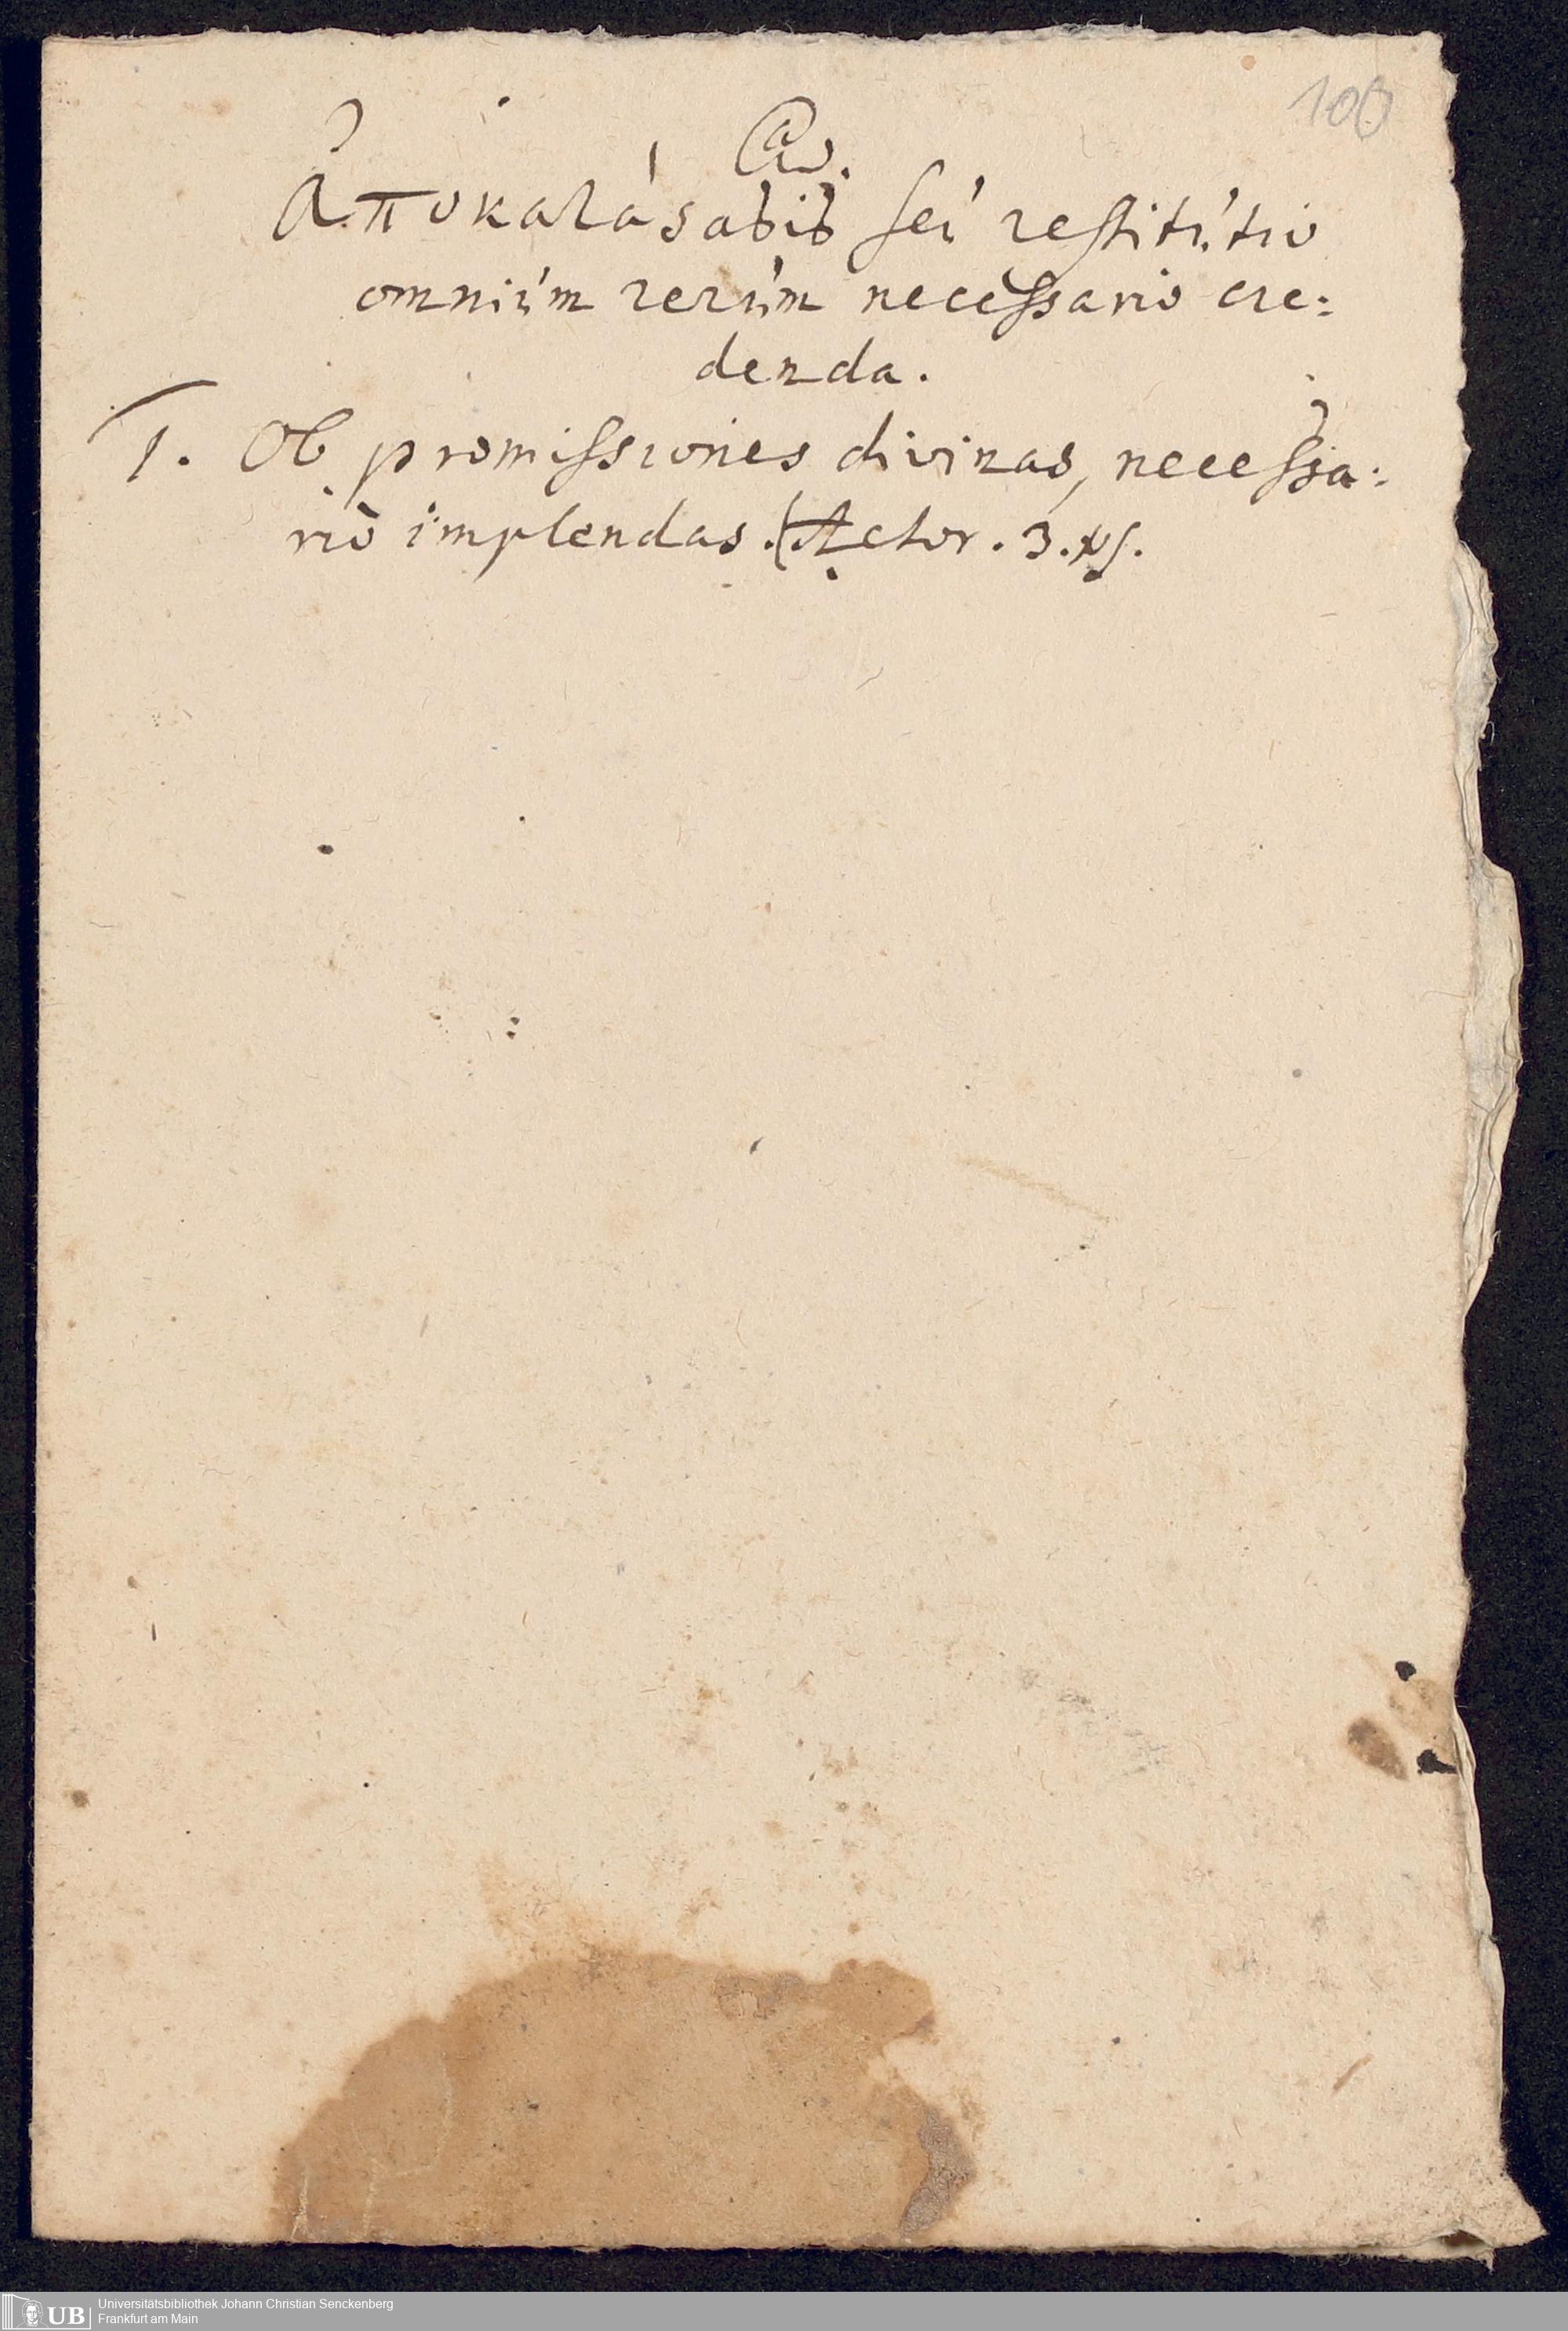 100
αω.
Ἀποκατάσασις seú restitútio
omniúm rerúm necessario cre:
denda.
1. Ob promissiones divinas, necessa:
riò implendas. (Actor. 3.
UB Universitätsbibliothek Johann Christian Senckenberg
Frankfurt am Main